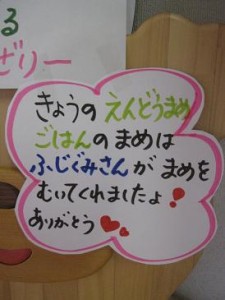 る
ゼリー
きょうの えんどうまめ
ごはんの まめは
ふじぐみさんが まめを
むいてくれましたよ!
ありがとう